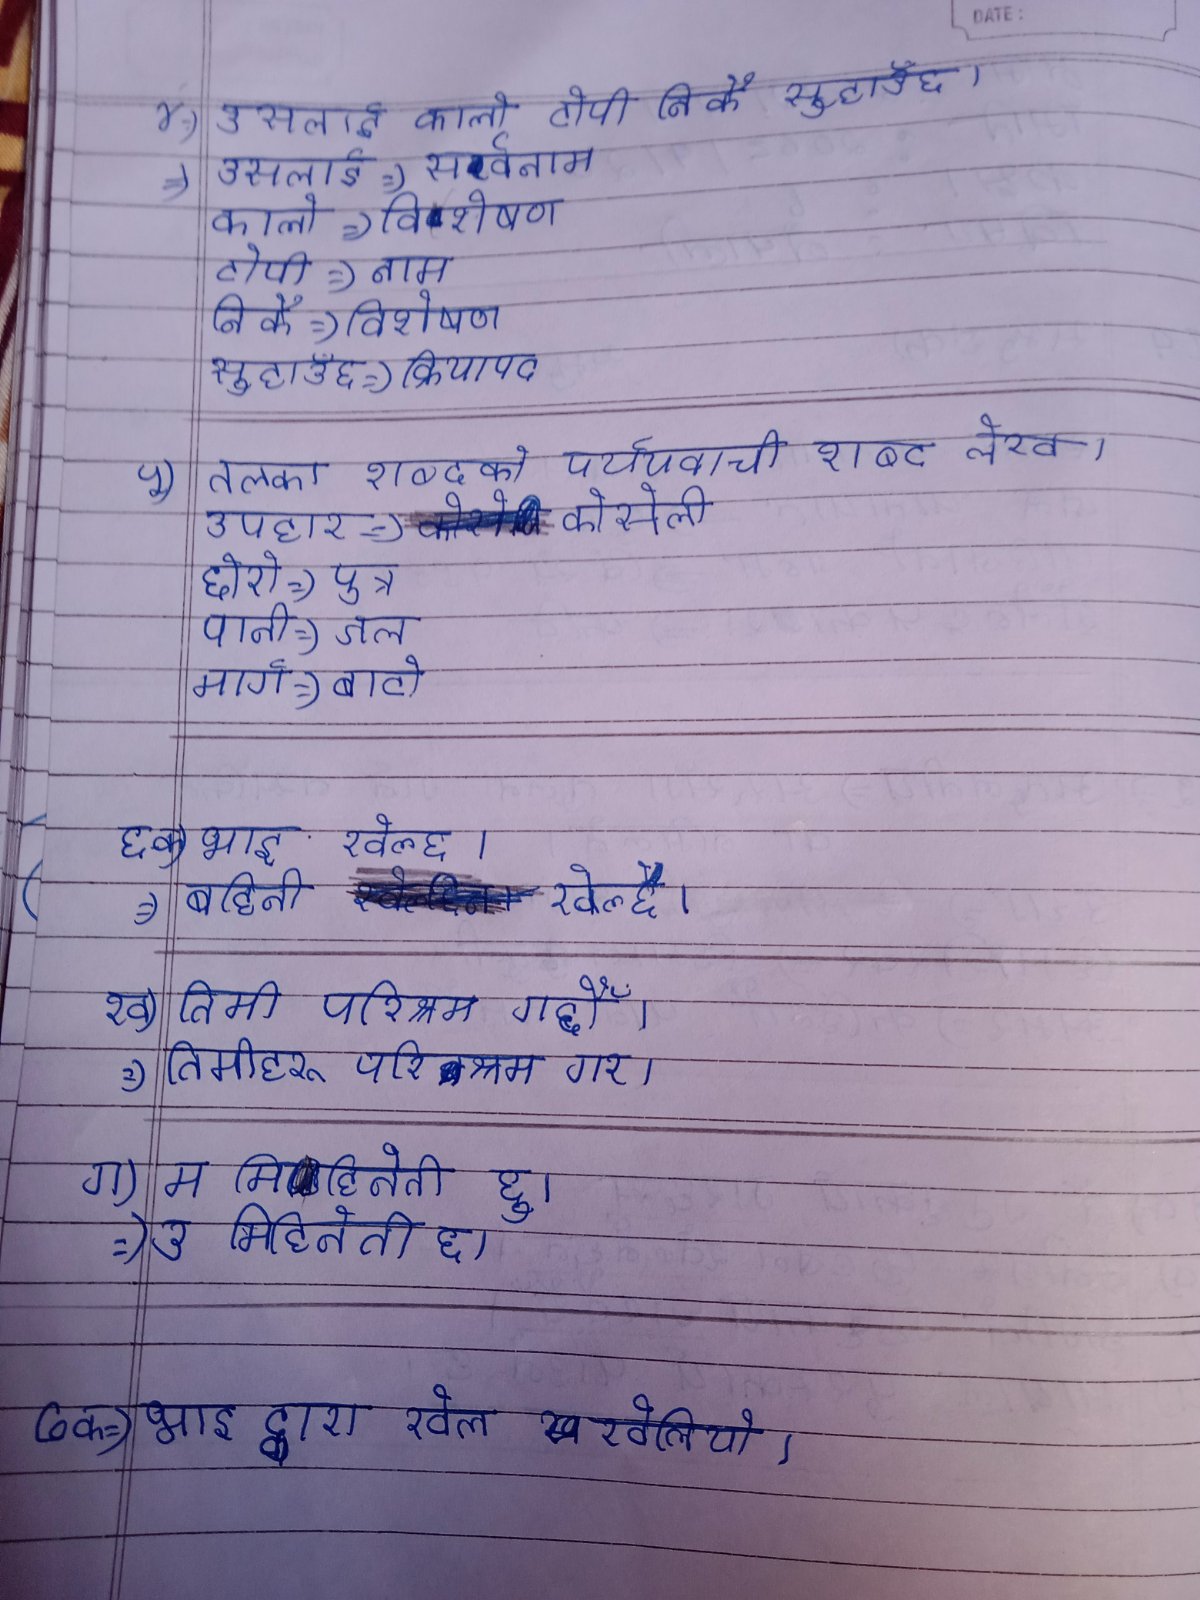 DATE :
४⇒) उसलाई कालो टोपी निकै सुहाउँछ।
⇒) उसलाई ⇒) सर्वनाम
कालो ⇒) विशेषण
टोपी ⇒) नाम
निकै ⇒) विशेषण
सुहाउँछ ⇒) क्रियापद
५) तलका शब्दको पर्यायवाची शब्द लेख।
उपहार ⇒) कोसेली
छोरो ⇒) पुत्र
पानी ⇒) जल
मार्ग ⇒) बाटो
६क) भाइ खेल्छ।
⇒) बहिनी खेल्छे।
ख) तिमी परिश्रम गर्छौ।
⇒) तिमीहरू परिश्रम गर।
ग) म मिहिनेती छु।
⇒) उ मिहिनेती छ।
७क⇒) भाइ द्वारा खेल खेलियो।